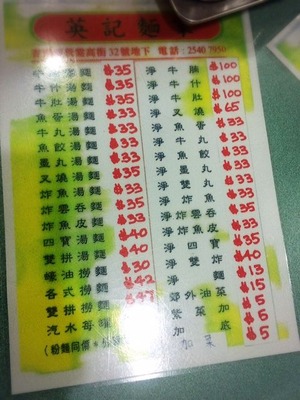 英記麵
營盤高街32號地下 電話：2540 7950
湯麵 35 淨牛腩 100
牛什湯麵 35 淨牛什 100
牛肚湯麵 35 淨牛肚 100
魚蛋湯麵 33 淨叉燒 65
牛丸湯麵 33 淨魚蛋 33
魚餃湯麵 33 淨牛丸 33
墨丸湯麵 33 淨魚餃 33
叉燒湯麵 35 淨墨丸 33
炸魚湯麵 33 淨雙丸 35
炸雲吞湯麵 35 淨炸魚 33
炸魚皮湯麵 33 淨炸雲吞 33
四寶湯麵 40 淨炸魚皮 35
雙拼湯麵 40 淨四寶 40
撈麵 30 淨 13
各式撈麵 42 郊外油菜 15
雙拼撈麵 47 紫菜 5
汽水 加底 5
(粉麵同價) 加 5